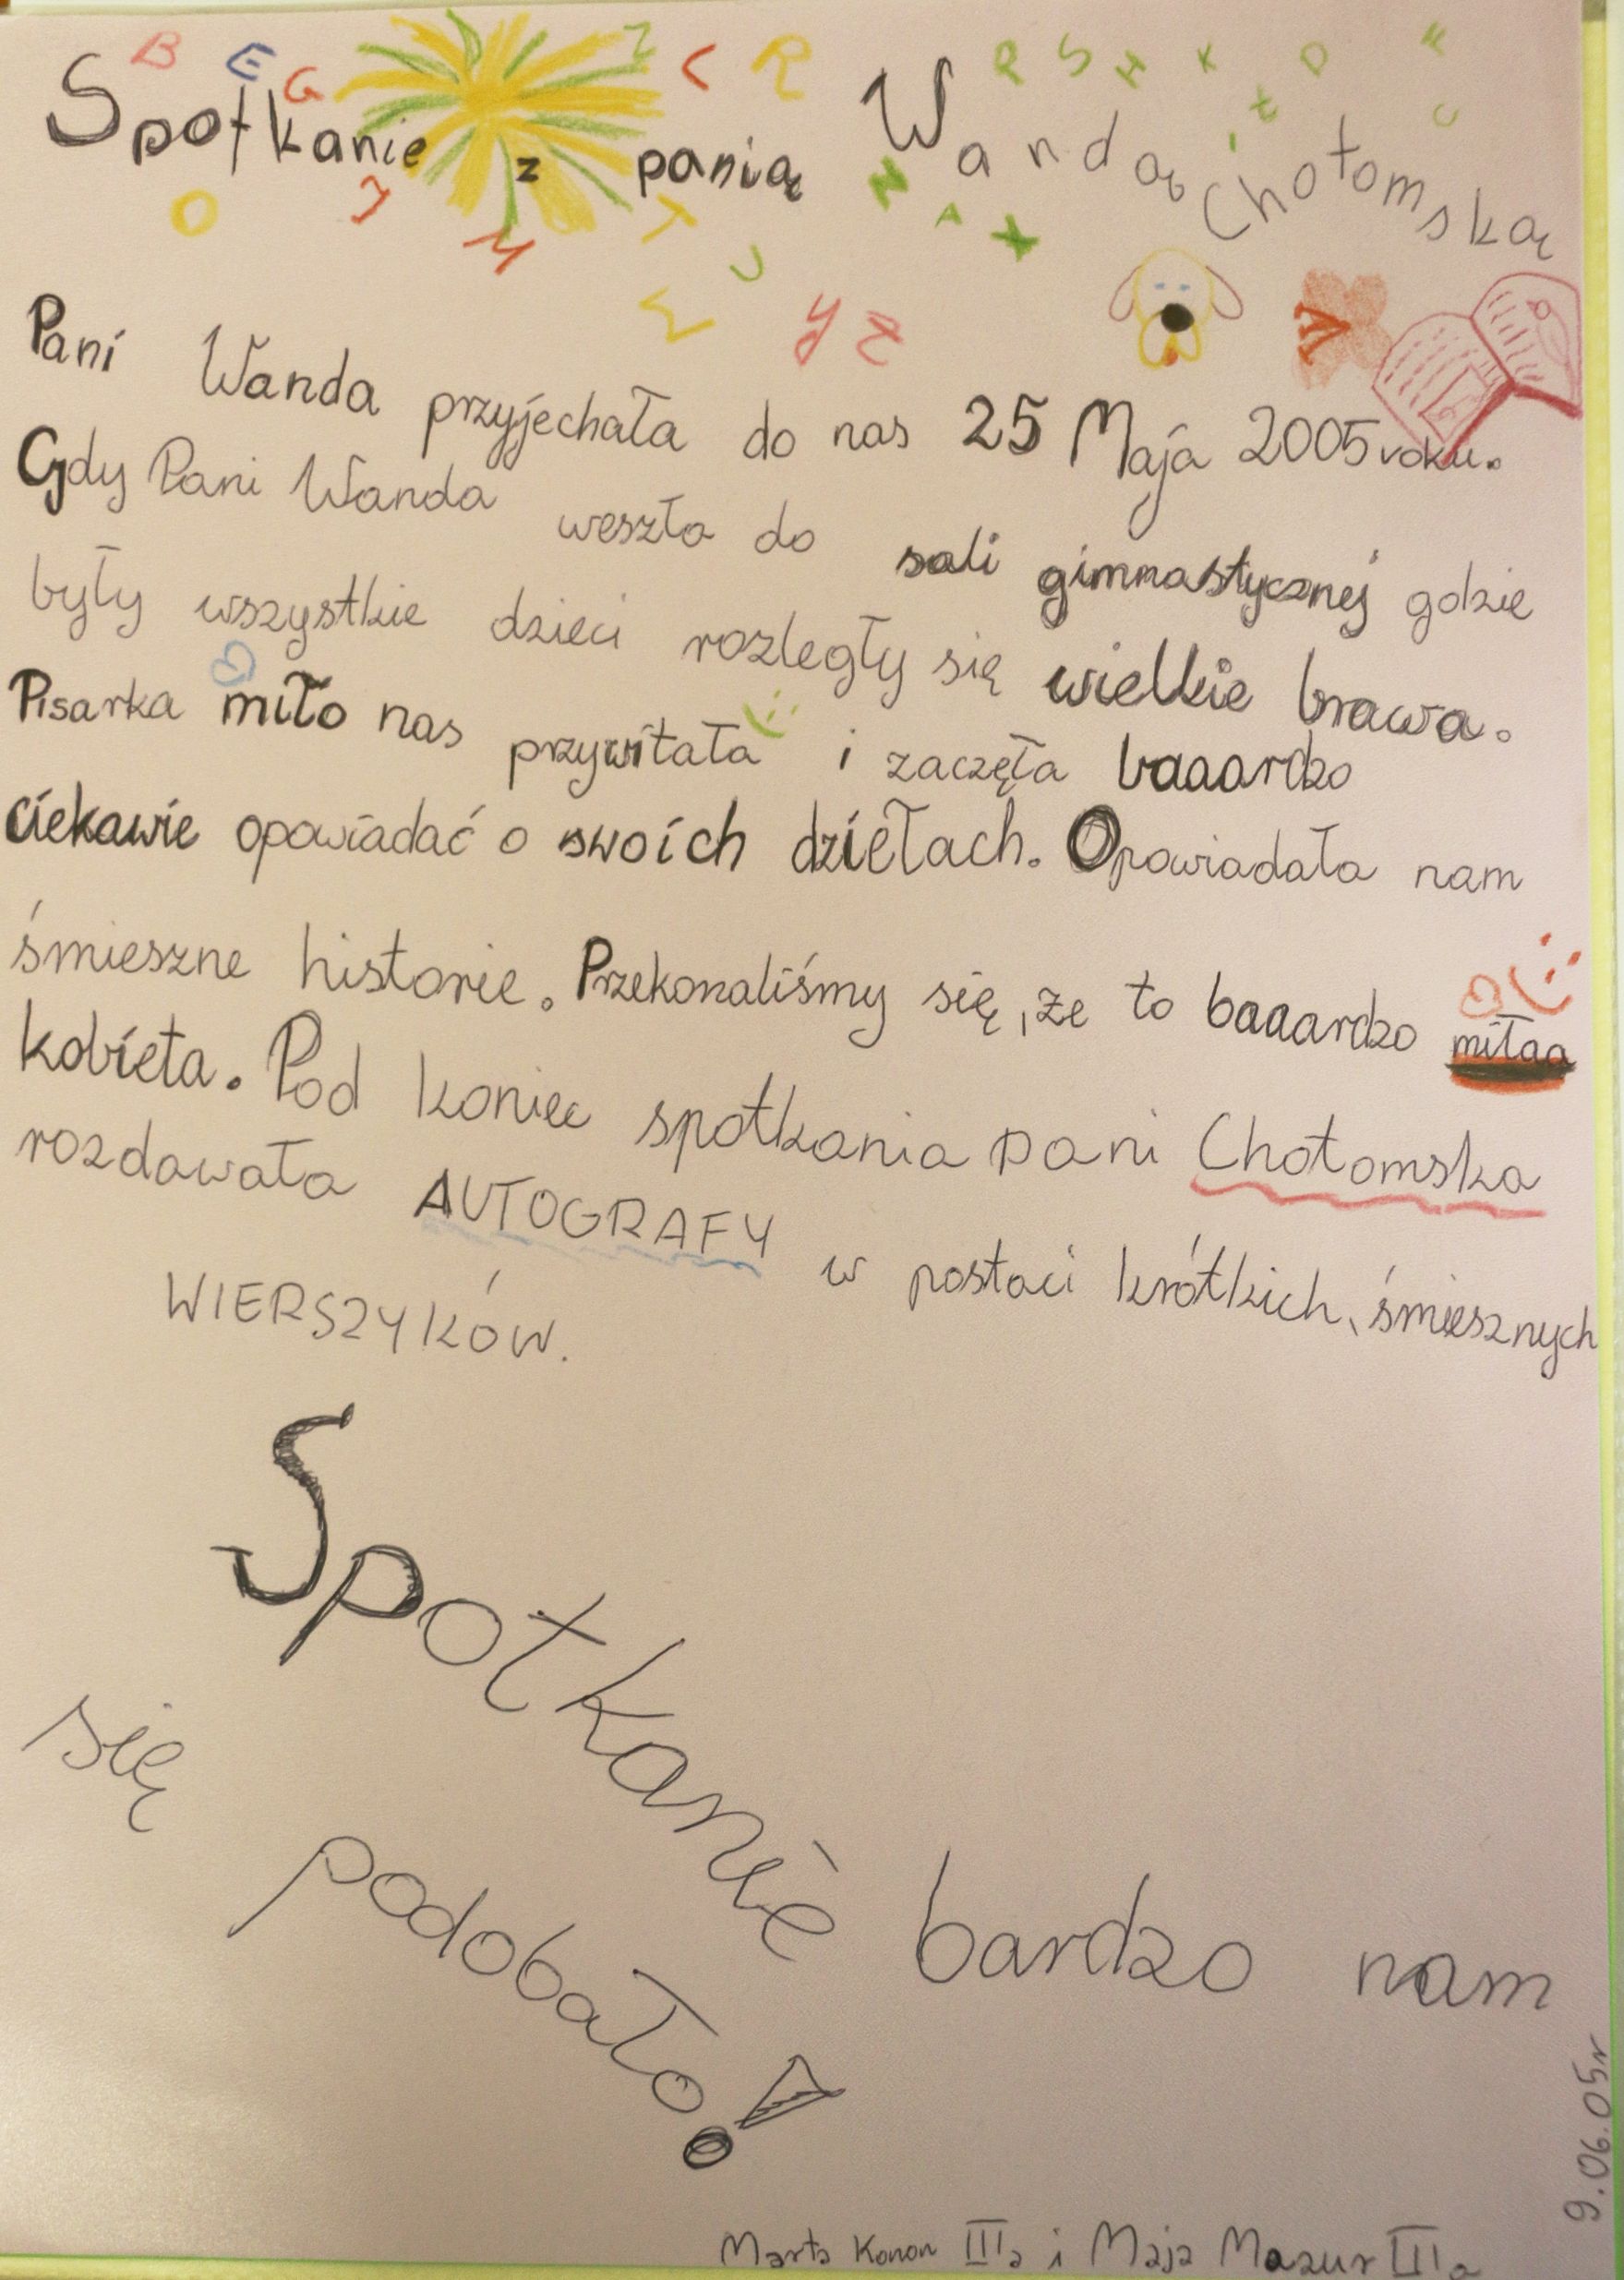 B E G Z C R P S H K D F
Spotkanie z panią Wandą Chotomską
O J M T U N A X
Y Z
Pani Wanda przyjechała do nas 25 Maja 2005 roku.
Gdy Pani Wanda weszła do sali gimnastycznej gdzie
były wszystkie dzieci rozległy się wielkie brawa.
Pisarka miło nas przywitała i zaczęła baaardzo
ciekawie opowiadać o swoich dziełach. Opowiadała nam
śmieszne historie. Przekonaliśmy się, że to baaardzo miłaa
kobieta. Pod koniec spotkania pani Chotomska
rozdawała AUTOGRAFY w postaci krótkich, śmiesznych
WIERSZYKÓW.
Spotkanie bardzo nam
się podobało!
9.06.05r
Marta Konon IIIa i Maja Mazur IIIa